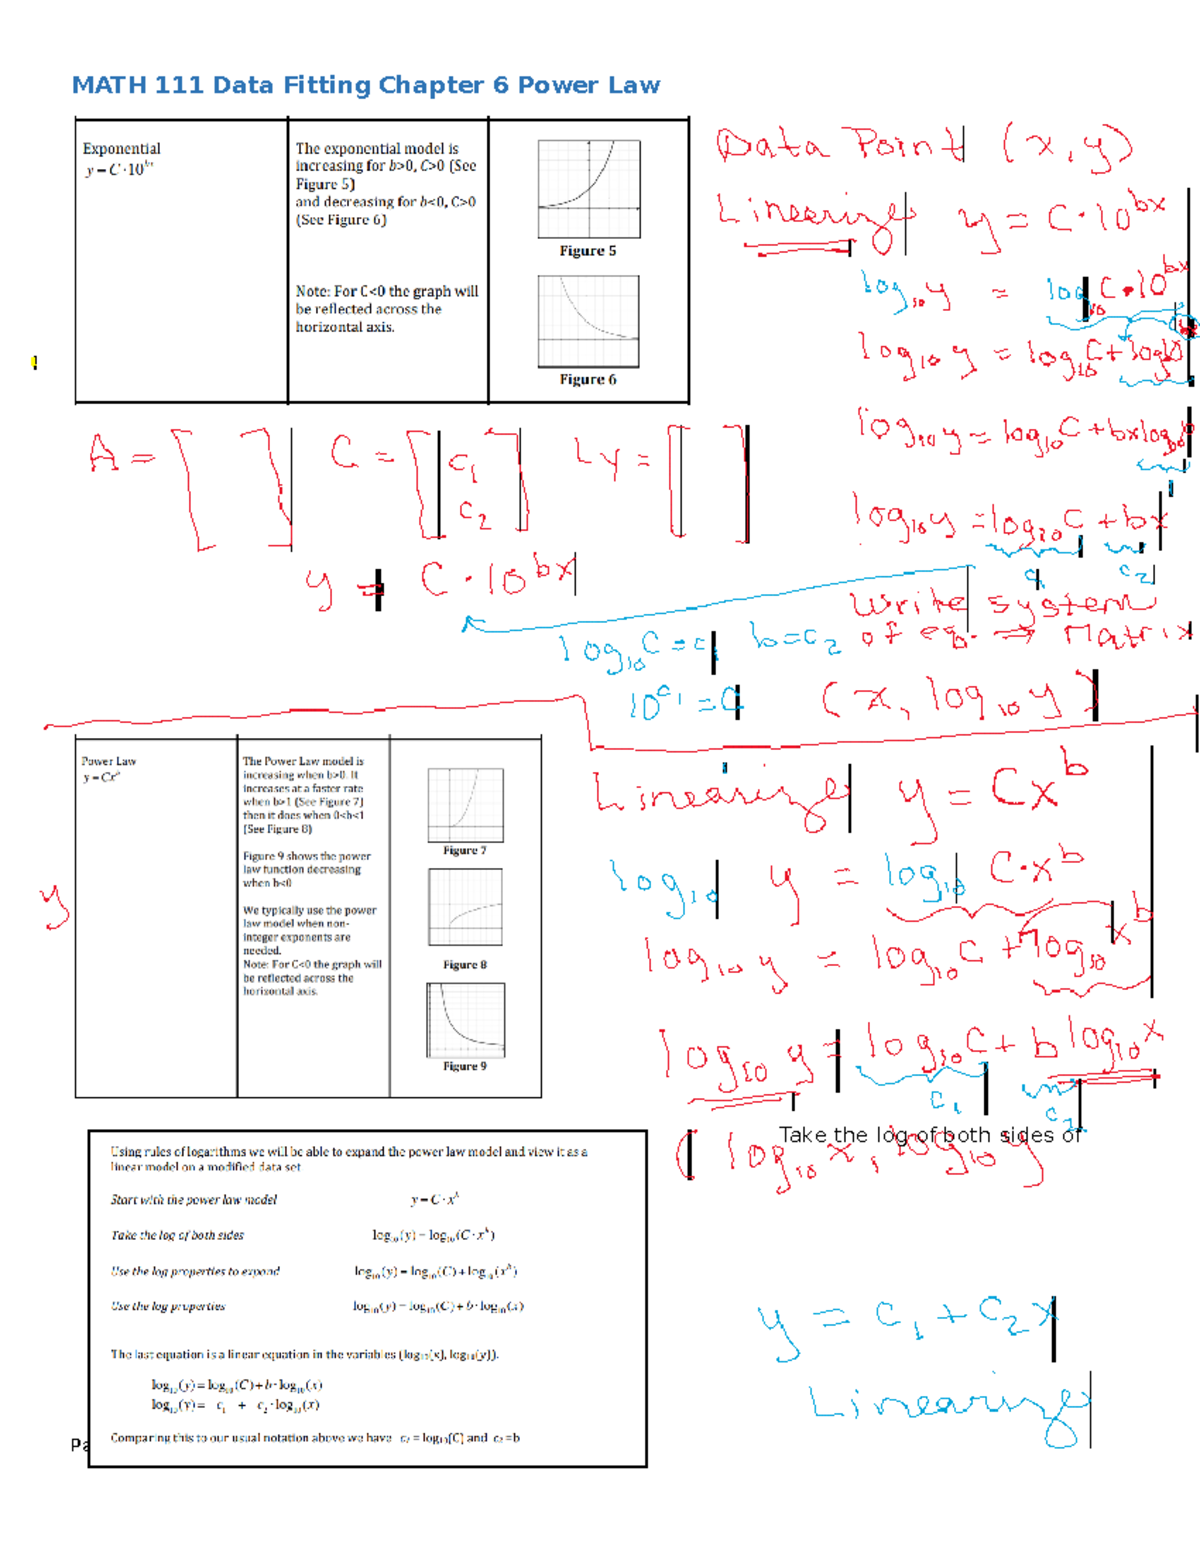 MATH 111 Data Fitting Chapter 6 Power Law
Exponential
y = C·10^{bx}
The exponential model is
increasing for b>0, C>0 (See
Figure 5)
and decreasing for b<0, C>0
(See Figure 6)
Note: For C<0 the graph will
be reflected across the
horizontal axis.
Figure 5
Figure 6
Data Point (x, y)
Linearize y = C·10^{bx}
log₁₀ y = log₁₀ C·10^{bx}
log₁₀ y = log₁₀ C + log₁₀
log₁₀ y = log₁₀ C + bx log₁₀
log₁₀ y = log₁₀ C + bx
c₂
Write system
of eq. → Matrix
(x, log₁₀ y)
!
A = [ ] C = [c₁
c₂] Ly = [ ]
y = C·10^{bx}
log₁₀ C = c₁ b = c₂
10^{c₁} = C
Power Law
y = Cx^b
The Power Law model is
increasing when b>0. It
increases at a faster rate
when b>1 (See Figure 7)
then it does when 0<b<1
(See Figure 8)
Figure 9 shows the power
law function decreasing
when b<0
We typically use the power
law model when non-
integer exponents are
needed.
Note: For C<0 the graph will
be reflected across the
horizontal axis.
Figure 7
Figure 8
Figure 9
y
Linearize y = Cx^b
log₁₀ y = log₁₀ C·x^b
log₁₀ y = log₁₀ C + log₁₀ x^b
log₁₀ y = log₁₀ C + b log₁₀ x
c₁ c₂
Take the log of both sides of
(log₁₀ x, log₁₀ y
y = c₁ + c₂x
Linearize
Using rules of logarithms we will be able to expand the power law model and view it as a
linear model on a modified data set
Start with the power law model y = C·x^b
Take the log of both sides log₁₀(y) = log₁₀(C·x^b)
Use the log properties to expand log₁₀(y) = log₁₀(C) + log₁₀(x^b)
Use the log properties log₁₀(y) = log₁₀(C) + b·log₁₀(x)
The last equation is a linear equation in the variables (log₁₀(x), log₁₀(y)).
log₁₀(y) = log₁₀(C) + b·log₁₀(x)
log₁₀(y) = c₁ + c₂·log₁₀(x)
Comparing this to our usual notation above we have = log₁₀(C) and =b
Pa